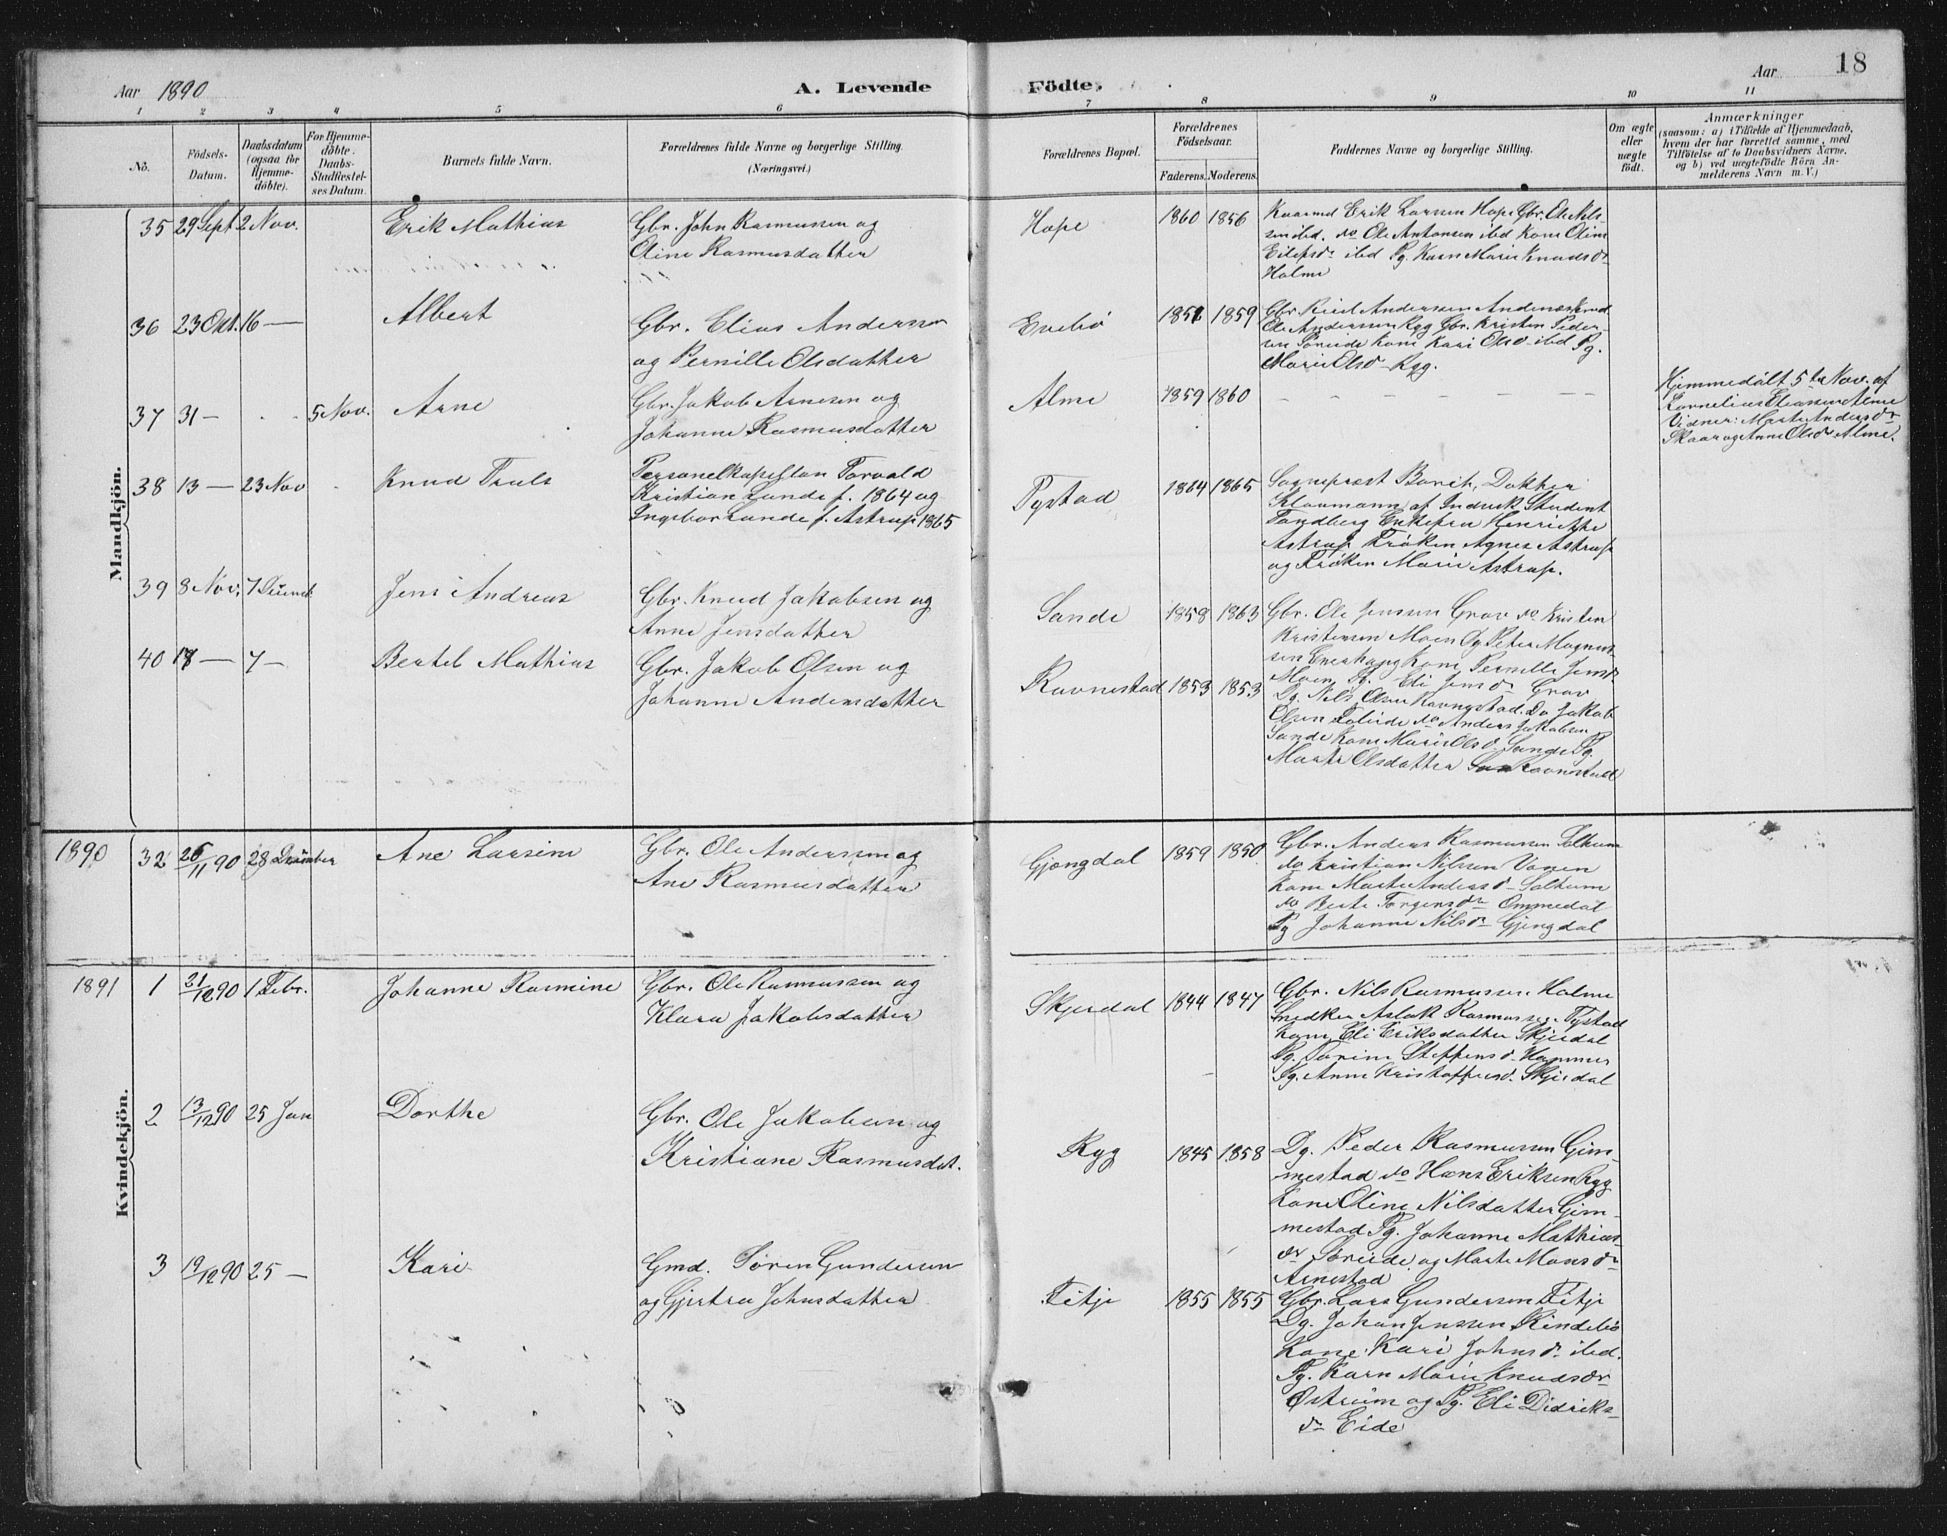 Aar 1890
A. Levende
Födte.
Aar
18
1 2 3 4 5 6 7 8 9 10 11
No.
Födsels-
Datum.
Daabsdatum
(ogsaa for
Hjemme-
döbte).
For Hjemme-
döbte:
Daabs-
Stadfæstel-
ses Datum.
Barnets fulde Navn.
Forældrenes fulde Navne og borgerlige Stilling.
(Næringsvei.)
Forældrenes Bopæl.
Forældrenes
Födselsaar.
Faderens. Moderens.
Faddernes Navne og borgerlige Stilling.
Om ægte
eller
uægte
födt.
Anmærkninger
(saasom: a) i Tilfælde af Hjemmedaab,
hvem der har forrettet samme, med
Tilföielse af to Daabsvidners Navne,
og b) ved uægtefödte Börn An-
melderens Navn m. V.)
Mandkjön.
35 29 Sept 2 Nov. Erik Mathias
Gbr. John Rasmussen og
Oline Rasmusdatter
Hope 1860 1856
Erik Larsen Hope Gbr. Ole Nils-
sen ibd. do Ole Antonsen ibd Kone Oline
ibd Pg. Karn Marie Knudsdr
Holme
36 23 Okt. 16 — Albert
Gbr. Elias Andersen
og Pernille Olsdatter
Evebö 1859
Gbr. Andersen
Ole Andersen Ryg Gbr. Kristen Peder-
sen Söreide Kone Kari Olsd ibd Pg.
Marie Olsd Ryg.
37 31 — 5 Nov. Arne
Gbr. Jakob Arnesen og
Johanne Rasmusdatter
Alme 1859 1860 — — — — — —
Hjemmedöbt 5te Nov. af
Kornelius Eliassen Alme
Vidner: Marte Andersdr
Skaar og Anne Olsdr Alme.
38 13 — 23 Nov Knud Truls
Personelkapellan Torvald
Kristian Sunde f. 1864 og
Ingeborg Sunde f. Astrup 1865
Tystad 1864 1865
Sogneprest Dokken
Klovmann af Indvik Student
Tandberg Enkefru Henriette
Astrup Fröken Agnes Astrup
og Fröken Marie Astrup.
39 8 Nov. 7 Jens Andreas
Gbr. Knud Jakobsen og
Anne Jensdatter
Sande 1858 1863
Gbr. Ole Jensen Grov do Kristen
Kristensen Moen Dg Peter Magnus-
sen Kone Pernille Jensdr
Moen Pg. Eli Jensdr Grov
40 18 — 7 — Bertel Mathias
Gbr. Jakob Olsen og
Johanne Andersdatter
Ravnestad 1853 1853
Dg. Nils Olsen Ravnestad. Do Jakob
Olsen do Anders Jakobsen
Sande Kone Marie Olsd. Sande Pg.
Marte Olsdatter Ravnestad
Kvindekjön.
1890 32 26/11 90 28 Desember Ane Larsine
Gbr. Ole Andersen og
Ane Rasmusdatter
Gjengdal 1859 1850
Gbr. Anders Rasmussen Solheim
do Kristian Nilssen Vonen
Kone Marte Andersd Solheim
do Berte Torgersdr Ommedal
Pg Johanne Nilsdr Gjengdal
1891 1 21/12 90 1 Febr. Johanne Rasmine
Gbr. Ole Rasmussen og
Klara Jakobsdatter
Skjerdal 1844 1847
Gbr. Nils Rasmussen Holme
Snedker Aslak Rasmussen Tystad
Kone Eli Eriksdatter Skjerdal
Pg. Sorine Steffensd. Hammer
Pg. Anne Kristoffersd. Skjerdal
2 13/12 90 25 Jan Dorthe
Gbr. Ole Jakobsen og
Kristiane Rasmusdat.
Ryg 1845 1858
Dg. Peder Rasmussen Gim-
mestad do Hans Eriksen Ryg
Kone Oline Nilsdatter Gim-
mestad Pg. Johanne Mathias-
dr Söreide og Marte Monsdr
Arnestad
3 19/12 90 25 — Kari
Gmd. Sören Gundersen
og Gjertru Johnsdatter
Fitje 1855 1855
Gbr. Lars Gundersen Fitje
Dg. Johan Jenssen
Kone Kari Johnsdr ibd.
Pg. Karn Marie Knudsdr
og Pg. Eli Didriks-
dr Eide